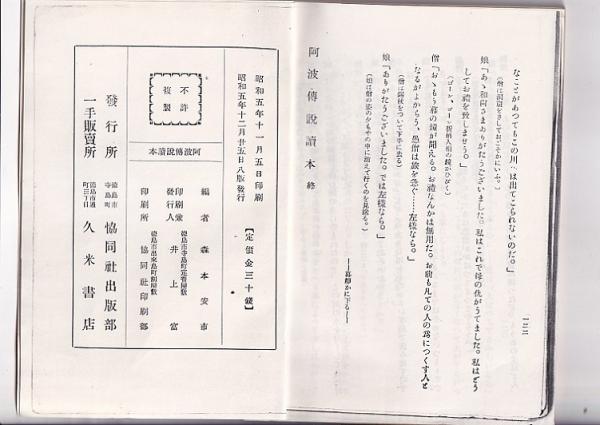 一二二
なことがあつてもこの川へは出てこられないのだ。」
(僧は洞窟をさしておごそかにいふ。)
娘「あゝ和尚さまありがたうございました。私はこれで母の仇がうてました。私はどう
してお禮を致しませう。」
僧「おゝもう務めの鐘が聞える。お禮なんかは無用だ。お前も凡ての人の爲につくす人と
なるがよからう、愚僧は旅を急ぐ……左樣なら。」
(僧は錫杖をついて下手に去る)
娘「ありがたうございました。では左樣なら。」
(娘は僧の姿の夕もやの中に消えて行くのを見送る。)
――幕靜かに下る――
阿波傳說讀本 終
昭和五年十一月五日印刷
昭和五年十二月廿五日八版發行
【定價金三十錢】
不許
複製
阿波傳說讀本
編者 森本安市
德島市寺島町
印刷兼
發行人 井上富
印刷所 協同社印刷部
發行所 德島市
寺島町 協同社出版部
一手販賣所 德島市通
町三丁目 久米書店